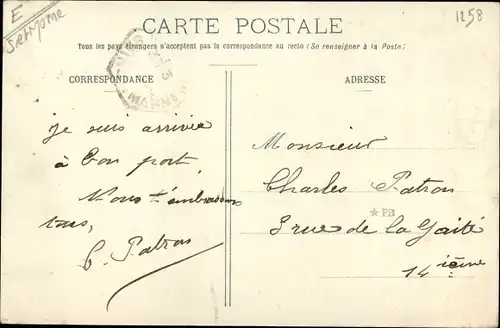 E
Sermone
CARTE POSTALE
1258
Tous les pays étrangers n'acceptent pas la correspondance au recto (Se renseigner à la Poste)
CORRESPONDANCE
ADRESSE
MARNE
je suis arrivée
à bon port,
Nous t'embrassons
tous,
C. Patron
Monsieur
Charles Patron
PB
8 rue de la Gaité
14 ième